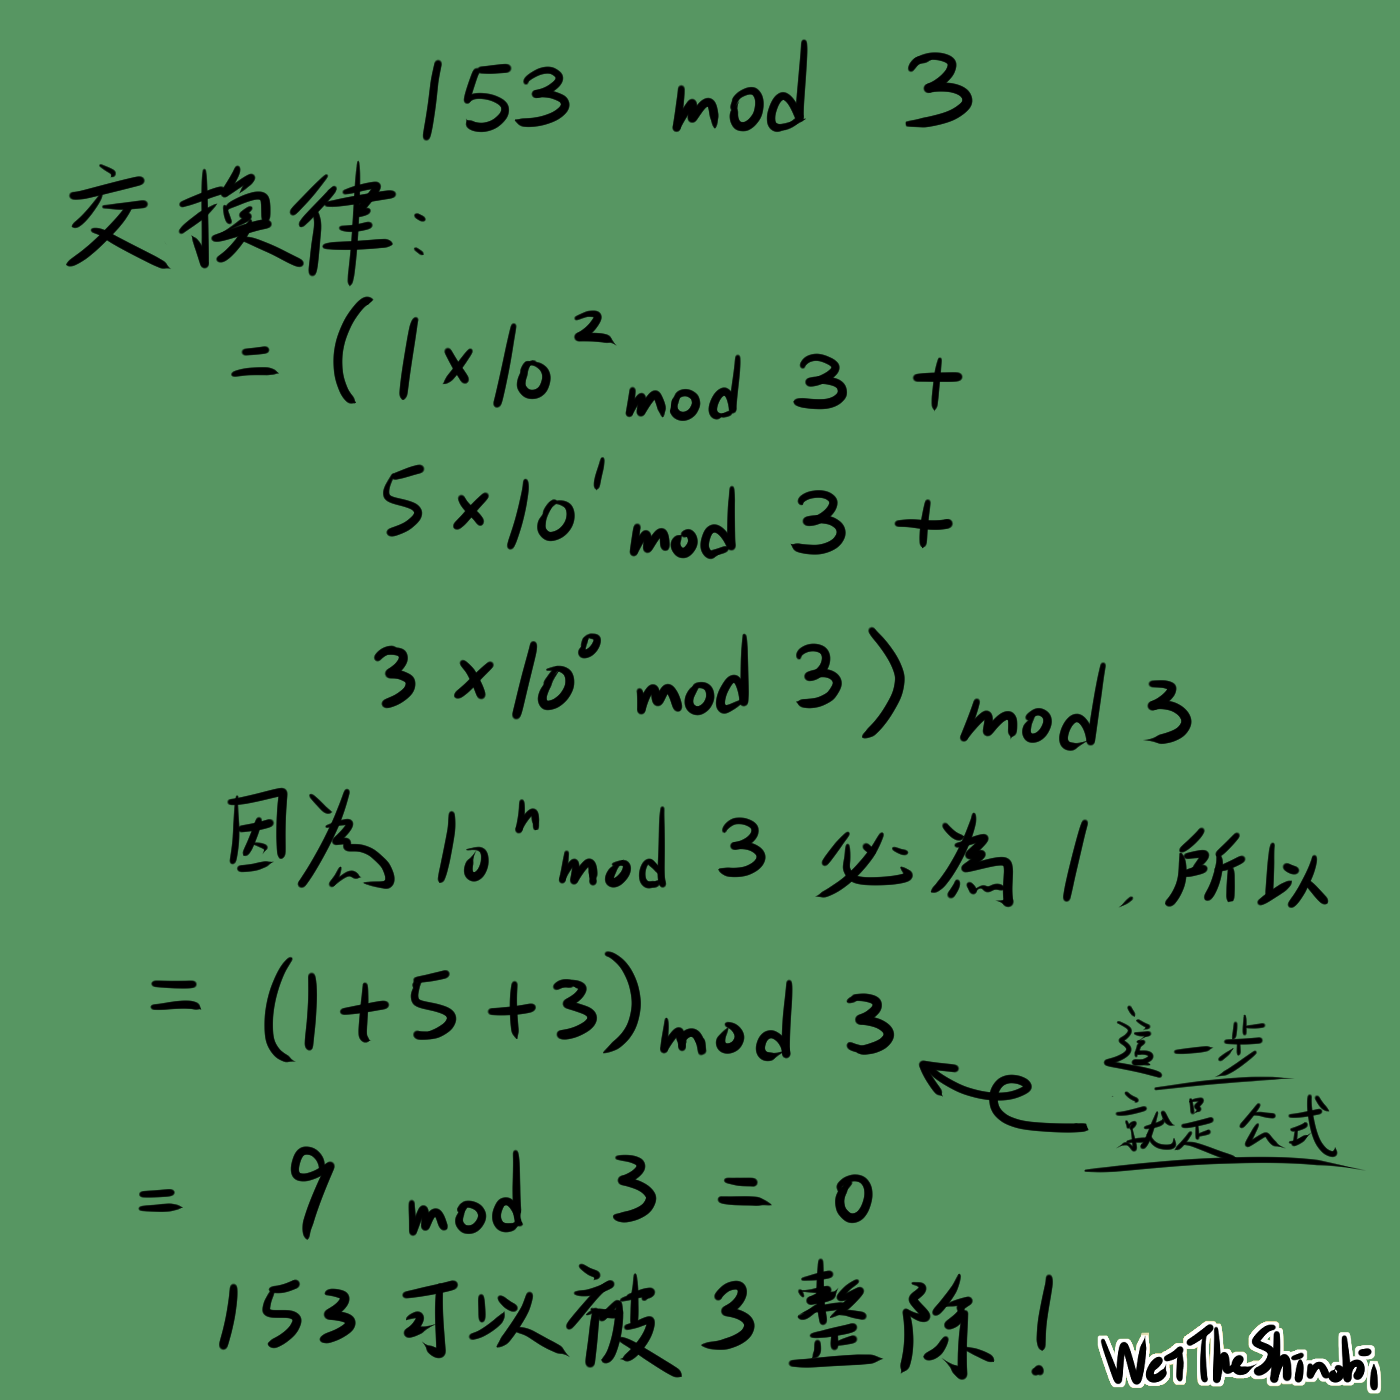 153 mod 3
交換律:
= (1×10² mod 3 +
5×10¹ mod 3 +
3×10⁰ mod 3) mod 3
因為 10ⁿ mod 3 必為 1, 所以
= (1+5+3) mod 3
這一步
就是公式
= 9 mod 3 = 0
153 可以被 3 整除!
WeiTheShinobi